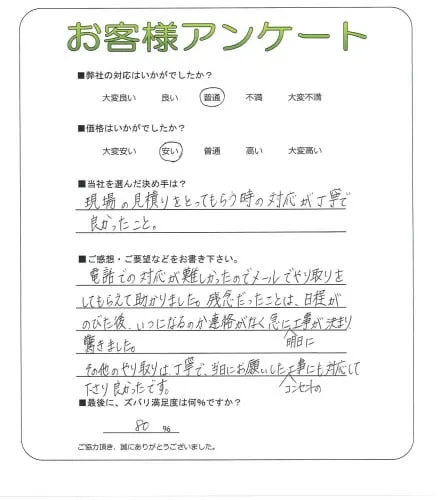 お客様アンケート
■弊社の対応はいかがでしたか？
大変良い　良い　普通　不満　大変不満
■価格はいかがでしたか？
大変安い　安い　普通　高い　大変高い
■当社を選んだ決め手は？
現場の見積りをとってもらう時の対応が丁寧で
良かったこと。
■ご感想・ご要望などをお書き下さい。
電話での対応が難しかったのでメールでやり取りを
してもらえて助かりました。残念だったことは、日程が
のびた後、いつになるのか連絡がなく急に工事が決まり
明日に
驚きました。
その他のやり取りは丁寧で、当日にお願いした工事にも対応して
コンセントの
下さり良かったです。
■最後に、ズバリ満足度は何％ですか？
80 %
ご協力頂き、誠にありがとうございました。